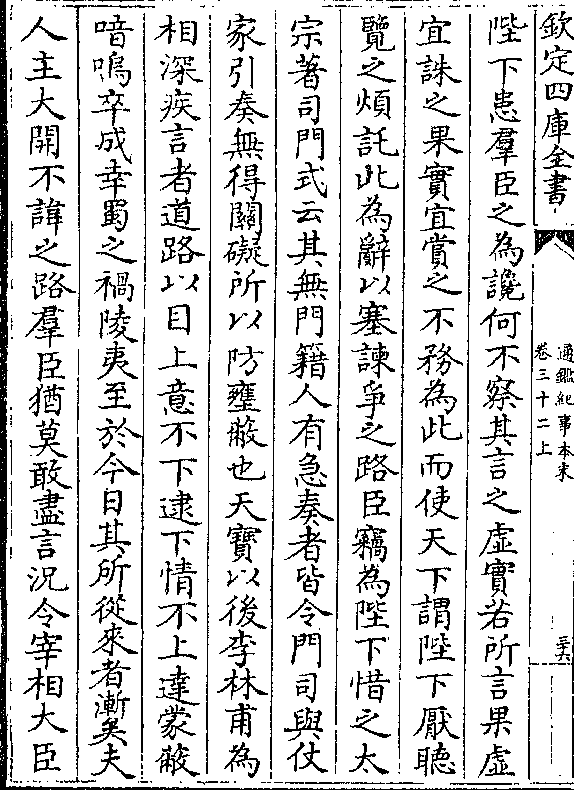 欽定四庫全書
通鑑紀事本末
卷三十二上
三六
陛下患羣臣之為讒何不察其言之虛實若所言果虛
宜誅之果實宜賞之不務為此而使天下謂陛下厭聽
覽之煩託此為辭以塞諫爭之路臣竊為陛下惜之太
宗著司門式云其無門籍人有急奏者皆令門司與仗
家引奏無得關礙所以防壅蔽也天寶以後李林甫為
相深疾言者道路以目上意不下逮下情不上達蒙蔽
喑嗚卒成幸蜀之禍陵夷至於今日其所從來者漸矣夫
人主大開不諱之路羣臣猶莫敢盡言況令宰相大臣